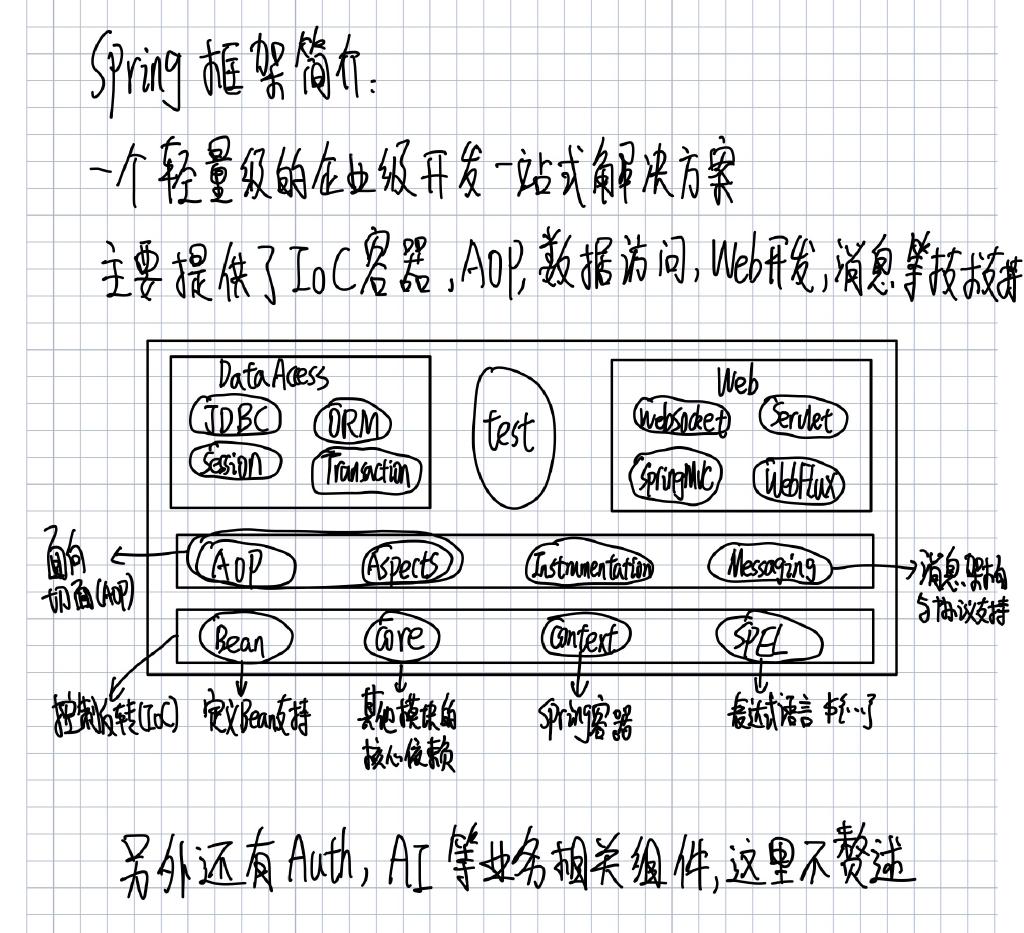 Spring 框架简介:
一个轻量级的企业级开发一站式解决方案
主要提供了IoC容器,AOP,数据访问,Web开发,消息等技术支持
DataAcess
JDBC
ORM
Session
Transaction
test
Web
Websocket
Servlet
SpringMVC
WebFlux
AOP
Aspects
Instrumentation
Messaging
面向
切面(AOP)
消息架构
与协议支持
Bean
Core
Context
SPEL
控制反转(IoC)
定义Bean支持
其他模块的
核心依赖
Spring容器
表达式语言
另外还有Auth,AI等业务相关组件,这里不赘述